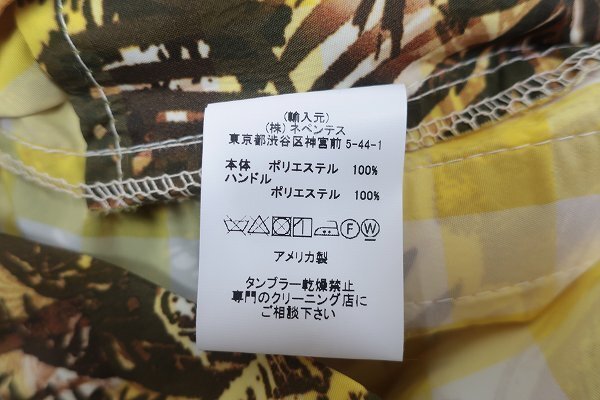 (輸入元)
(株) ネペンテス
東京都渋谷区神宮前 5-44-1
本体 ポリエステル 100%
ハンドル
ポリエステル 100%
F W
アメリカ製
タンブラー乾燥禁止
専門のクリーニング店に
ご相談下さい